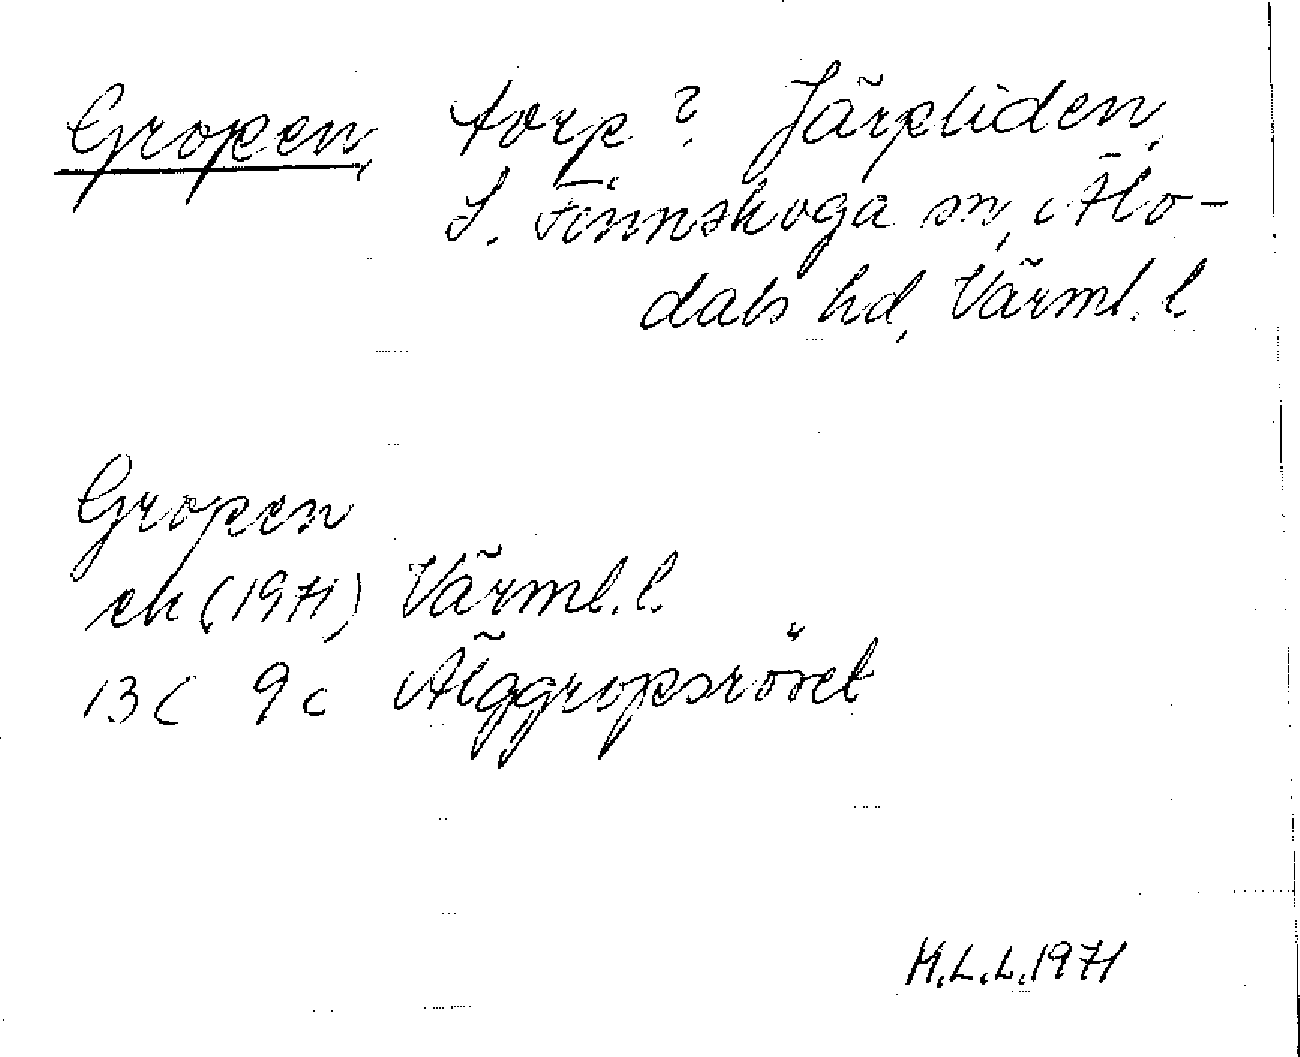 Gropen, torp? Järpliden,
S. Finnskoga sn, Älv-
dals hd, Värml. l.
Gropen
ek (1971) Värml. l.
13C 9c Älggropsröset
M.L.L. 1971